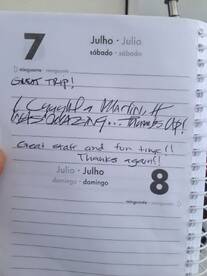 7
Julho · Julio
sábado · sábado
GREAT TRIP!
I Caught a Marlin, It
WAS AMAZING... Thumbs Up!
Great staff and fun time!!
Thanks again!!
Julio · Julho
domingo · domingo
8